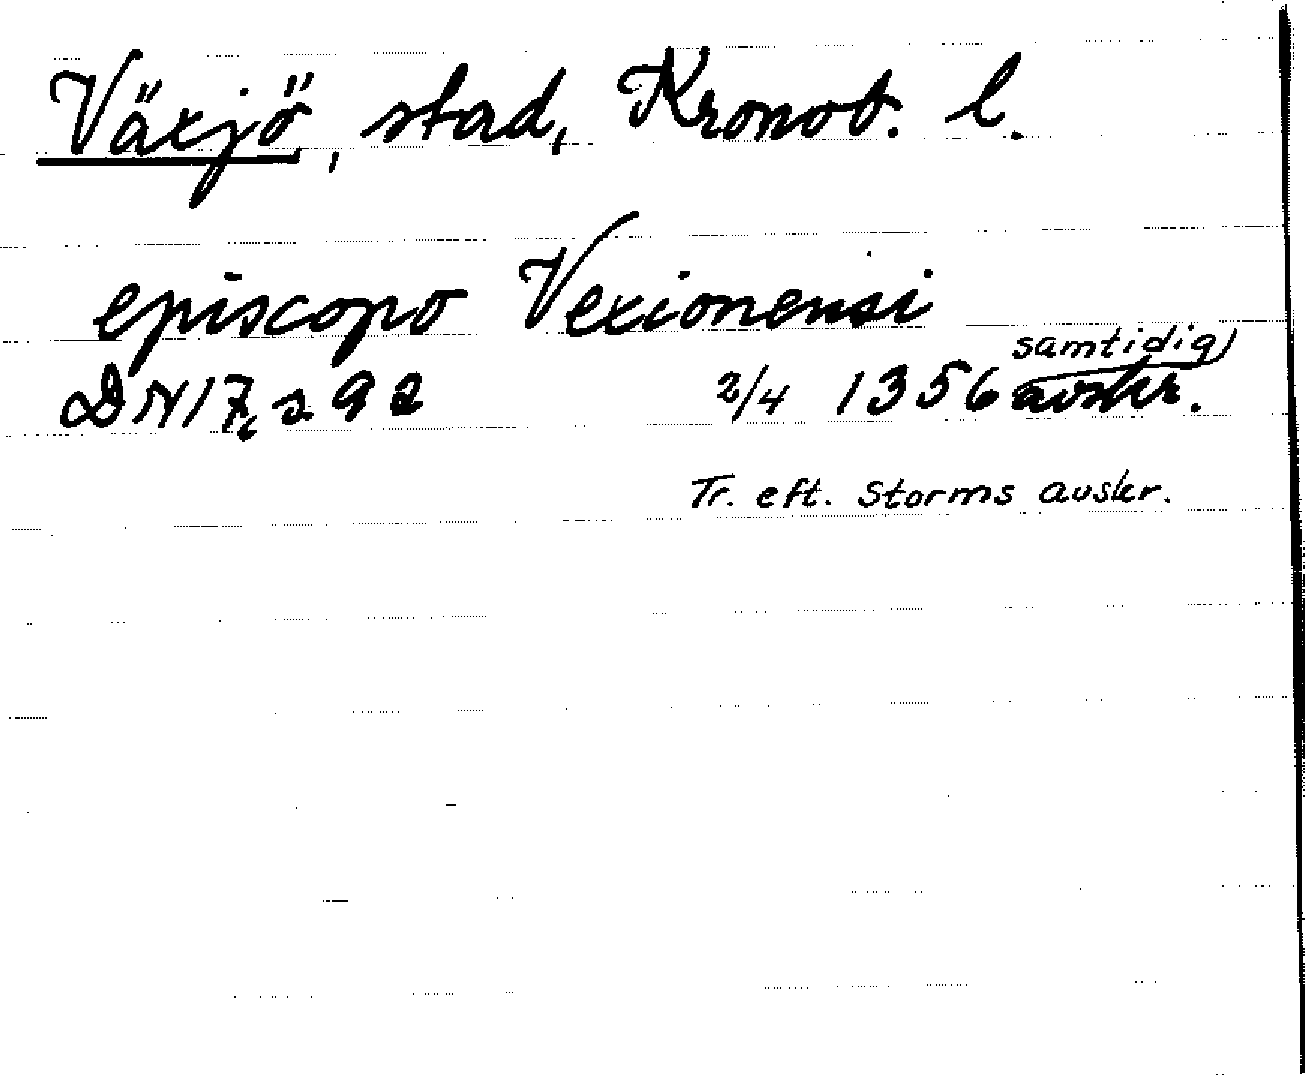 Växjö, stad, Kronob. l.
episcopo Vexionensi
DN 17, s 92 2/4 1356 samtidig avskr.
Tr. eft. Storms avskr.